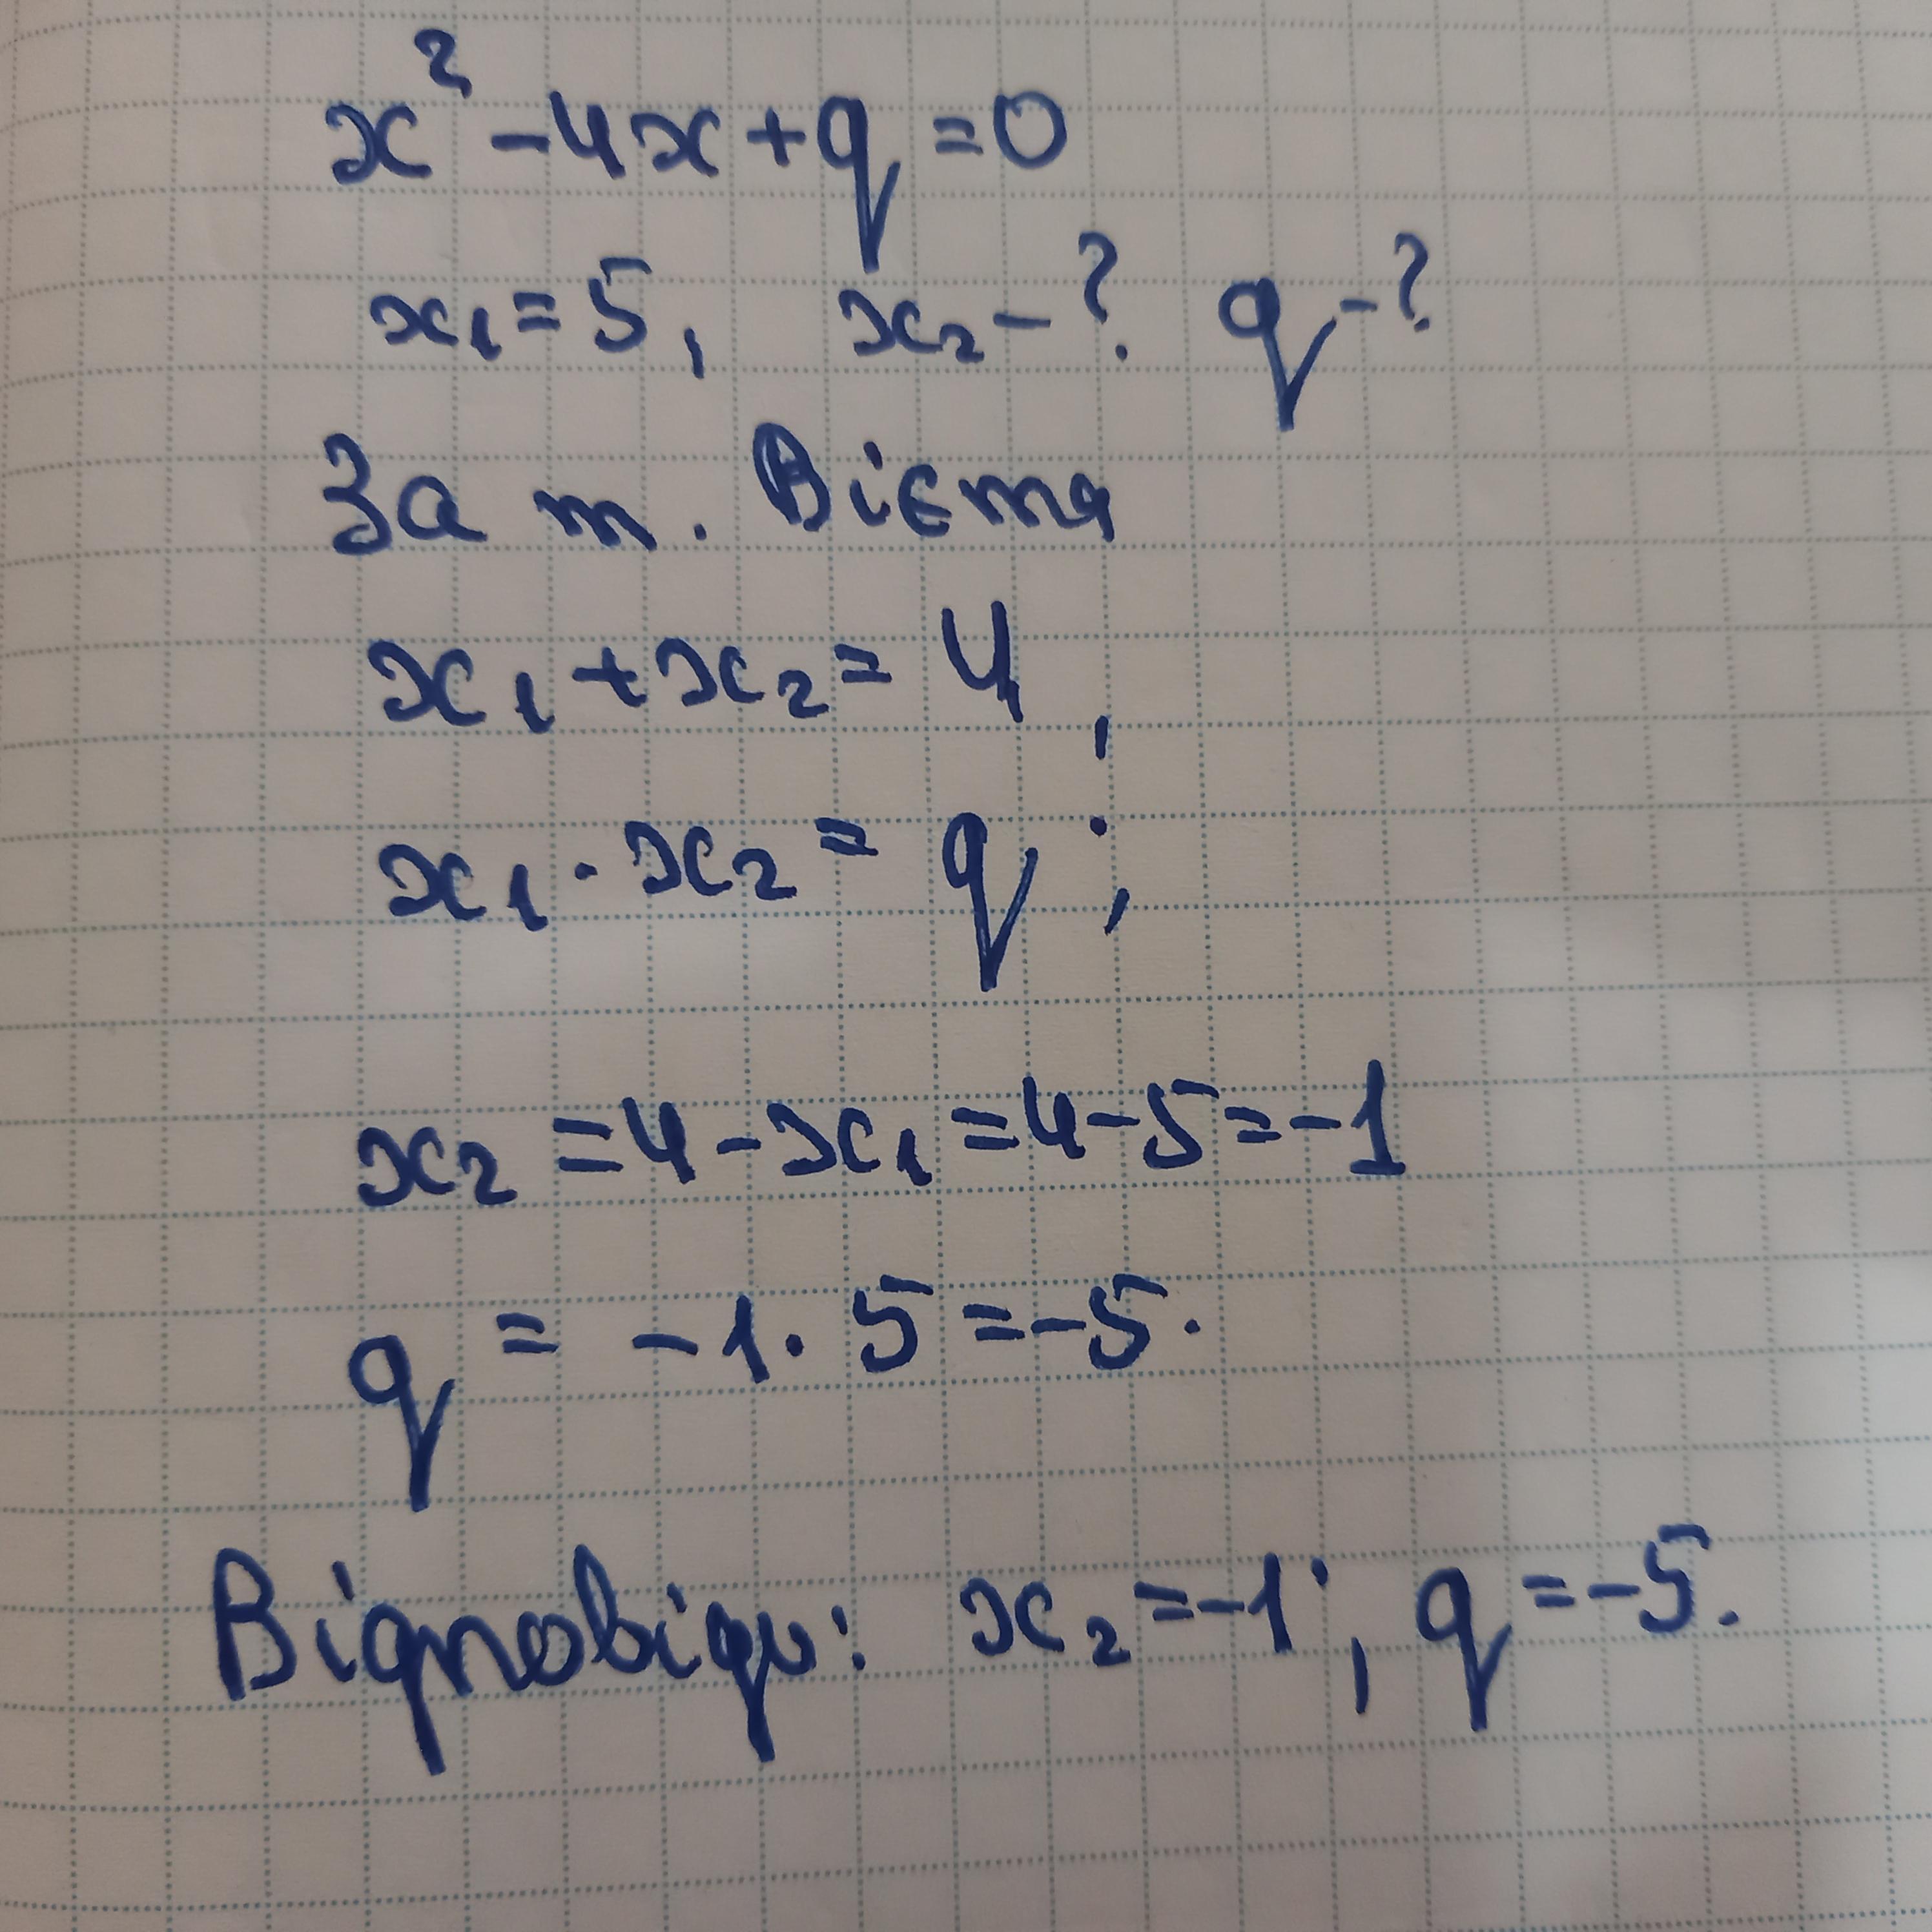 x² - 4x + q = 0
x₁ = 5, x₂ - ? q - ?
За т. Вієта
x₁ + x₂ = 4,
x₁ · x₂ = q;
x₂ = 4 - x₁ = 4 - 5 = -1
q = -1 · 5 = -5.
Відповідь: x₂ = -1; q = -5.